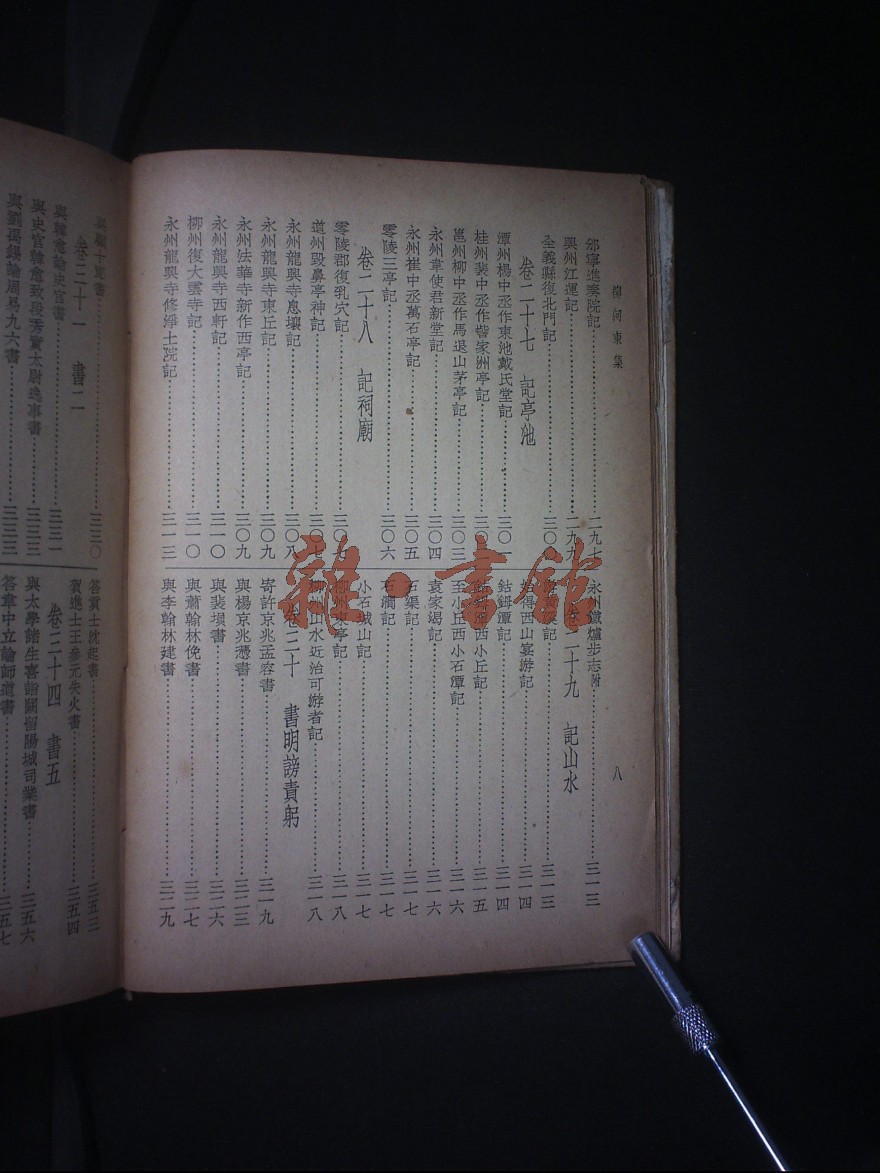 柳河東集
八
邠寧進奏院記……二九七
興州江運記……二九九
全義縣復北門記……三〇〇
卷二十七 記亭池
潭州楊中丞作東池戴氏堂記……三〇一
桂州裴中丞作訾家洲亭記……三〇
邕州柳中丞作馬退山茅亭記……三〇三
永州韋使君新堂記……三〇四
永州崔中丞萬石亭記……三〇五
零陵三亭記……三〇六
卷二十八 記祠廟
零陵郡復乳穴記……三〇七
道州毀鼻亭神記……三〇七
永州龍興寺息壤記……三〇八
永州龍興寺東丘記……三〇九
永州法華寺新作西亭記……三〇九
永州龍興寺西軒記……三一〇
柳州復大雲寺記……三一〇
永州龍興寺修淨土院記……三一三
永州鐵爐步志附……三一三
卷二十九 記山水
記……三一三
始得西山宴游記……三一四
鈷鉧潭記……三一四
鈷鉧潭西小丘記……三一五
至小丘西小石潭記……三一六
袁家渴記……三一六
石渠記……三一七
石澗記……三一七
小石城山記……三一七
柳州東亭記……三一八
柳州山水近治可游者記……三一八
卷三十 書明謗責躬
寄許京兆孟容書……三一九
與楊京兆憑書……三二三
與裴塤書……三二六
與蕭翰林俛書……三二七
與李翰林建書……三二九
與顧十郎書……三三〇
卷三十一 書二
與韓愈論史官書……三三一
與史官韓愈致段秀實太尉逸事書……三三三
與劉禹錫論周易九六書……三三三
答貢士沈起書……三五三
賀進士王參元失火書……三五四
卷三十四 書五
與太學諸生喜詣闕留陽城司業書……三五六
答韋中立論師道書……三五七
雜·書館